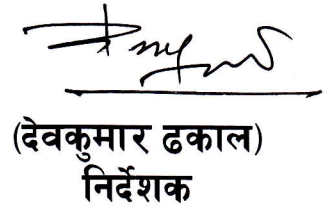 (देवकुमार ढकाल)
निर्देशक